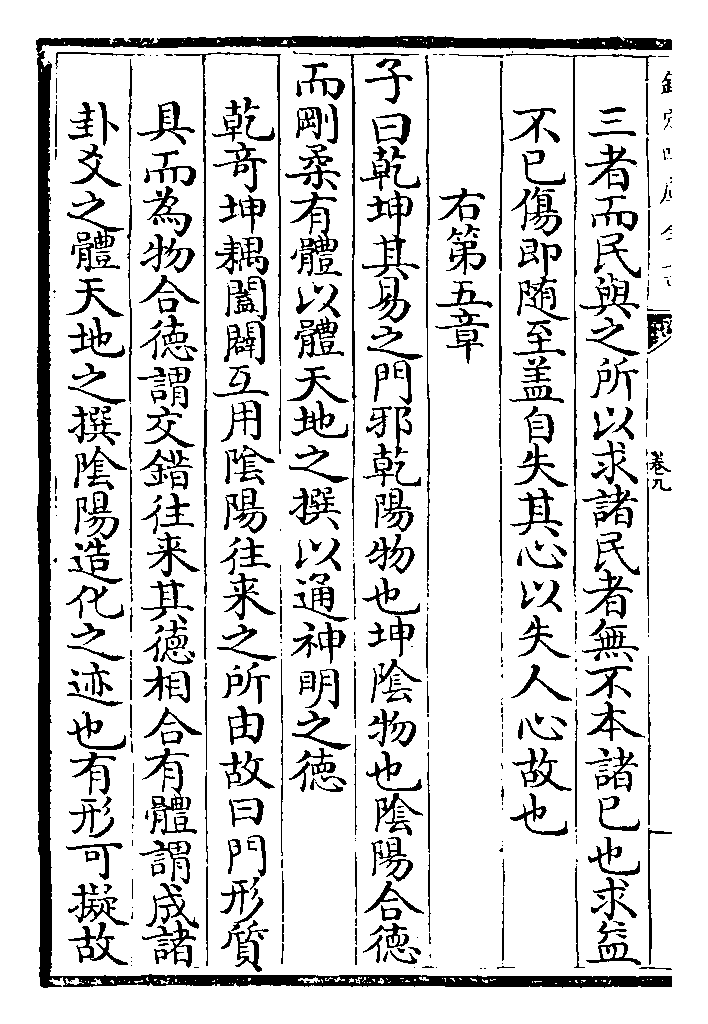 三者而民與之所以求諸民者無不本諸已也求益
不已傷即随至盖自失其心以失人心故也
右第五章
子曰乾坤其易之門邪乾陽物也坤隂物也隂陽合德
而剛柔有體以體天地之撰以通神明之德
乾竒坤耦闔闢互用隂陽往来之所由故曰門形質
具而為物合德謂交錯往来其德相合有體謂成諸
卦爻之體天地之撰隂陽造化之迹也有形可擬故
卷九